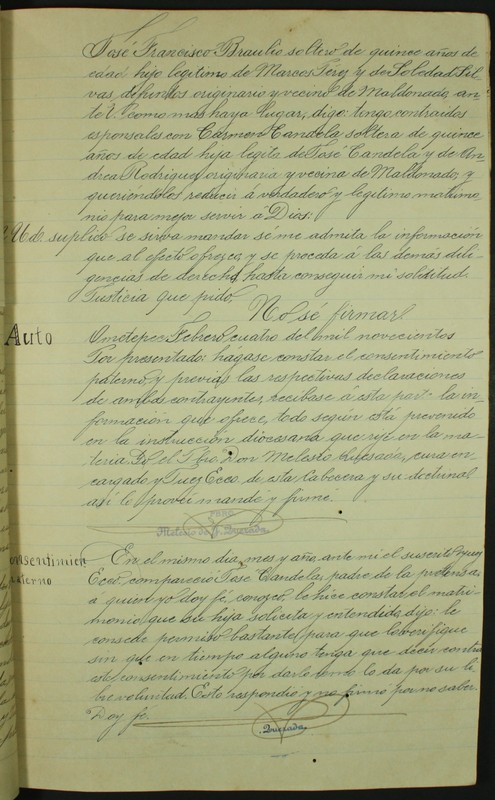 José Francisco Braulio, soltero de quince años de
edad, hijo legitimo de Marcos Terez y de Soledad Sil-
vas, difuntos originario y vecino de Maldonado, an-
te V. como mas haya lugar, digo: tengo contraidos
esponsales con Carmen Candela soltera de quince
años de edad hija legita. de José Candela y de An-
drea Rodriguez, originaria y vecina de Maldonado, y
queriéndoles reducir á verdadero y legitimo matrimo
nio para mejor servir a Dios:
A Ud. suplico se sirva mandar sé me admita la información
que al efecto ofresco, y se proceda á las demás dili-
gencias de derecho, hasta conseguir mi solisitud.
Justicia que pido.
No sé firmar
Auto
Ometepec Febrero cuatro del mil novecientos
Por presentado: hágase constar el consentimiento
paterno, y previas las respectivas declaraciones
de ambos contrayentes, recibase á esta parte la in-
formación que ofrece, todo según está prevenido
en la instruccion diocesana que rije en la ma-
teria. Yo el Pbro. Don Melesio Quesada, cura en-
cargado y Juez Ecco. de esta Cabecera y su doctrinal
así lo proveí mandé y firmé.
PBRO.
Melesio de J. Quezada.
onsentimien
aterno
En el mismo dia, mes y año, ante mi el suscrito Juez
Ecco, comparecio José Candela, padre de la pretensa,
á quien yo doy fé, conosco, le hice constar el matri-
monio, que su hija solicita y entendido, dijo: le
consede permiso bastante, para que lo verifique
sin que en tiempo alguno tenga que decir contra
este consentimiento por darle como lo da por su li-
bre voluntad. Esto respondio y no firmo por no saber.
Doy fe.
Quezada.